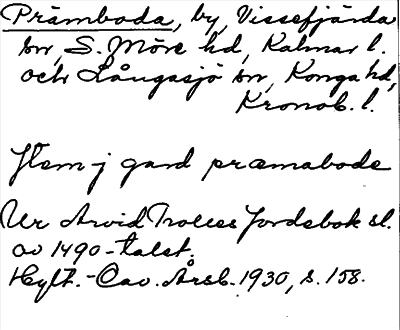 Främboda, by, Vissefjärda
sn, S. Möre hd, Kalmar l.
och Långasjö sn, Konga hd,
Kronob. l.
Jtem j gard præmabode
Ur Arvid Trolles Jordebok sl.
av 1490-talet.
Hylt.-Cav. Årsb. 1930, s. 158.